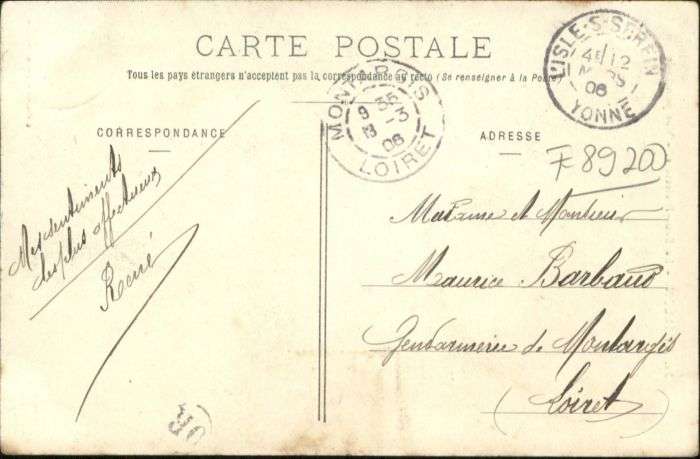 CARTE POSTALE
Tous les pays étrangers n'acceptent pas la correspondance au recto (Se renseigner à la Poste)
CORRESPONDANCE
ADRESSE
L'ISLE-S-SEREIN
4E 12
MARS
06
YONNE
MONTARGIS
9 35
13 -3
06
LOIRET
F 89200
Mes sentiments
les plus affectueux
René
Madame et Monsieur
Maurice Barbaud
Gendarmerie de Montargis
(Loiret)